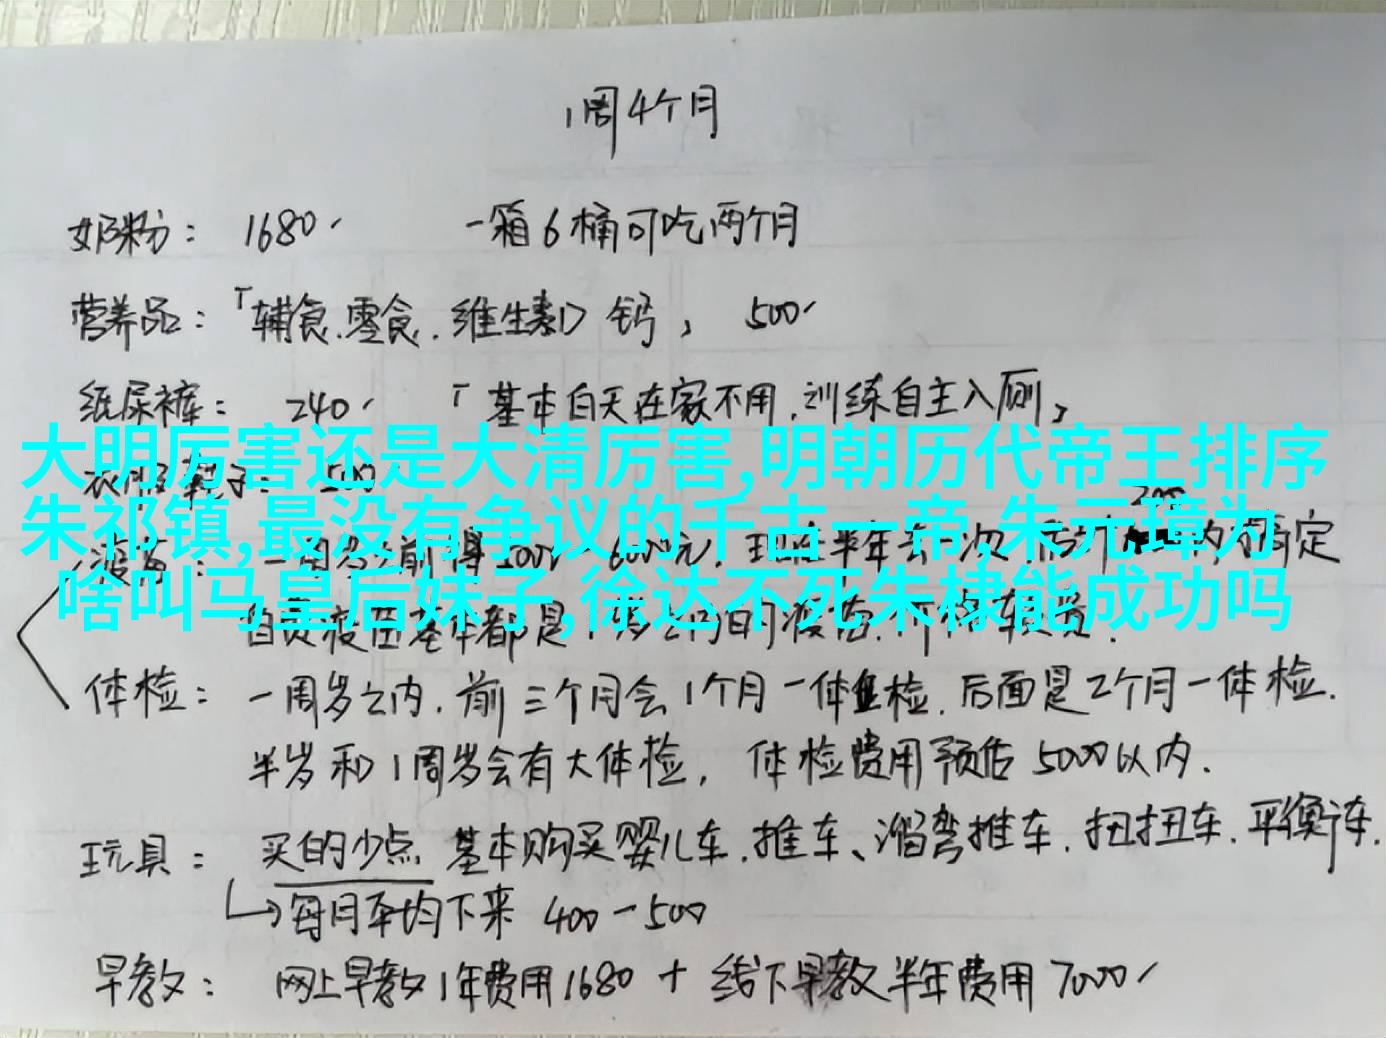 1周4个月
奶粉： 1680 一箱6桶可吃两个月
营养品：「辅食.零食.维生素D 钙」 500
纸尿裤： 240 「基本白天在家不用,训练自主入厕」
大明厉害还是大清厉害,明朝历代帝王排序
朱祁镇,最没有争议的千古一帝,朱元璋为
啥叫马皇后妹子,徐达不死朱棣能成功吗
体检： 一周岁之内.前三个月会1个月一体检.后面是2个月一体检.
半岁和1周岁会有大体检, 体检费用预估5000以内.
玩具： 买的少点 基本购买婴儿车.推车、溜弯推车.扭扭车.平衡车.
每月平均下来 400-500
早教： 网上早教1年费用1680 + 线下早教半年费用7000